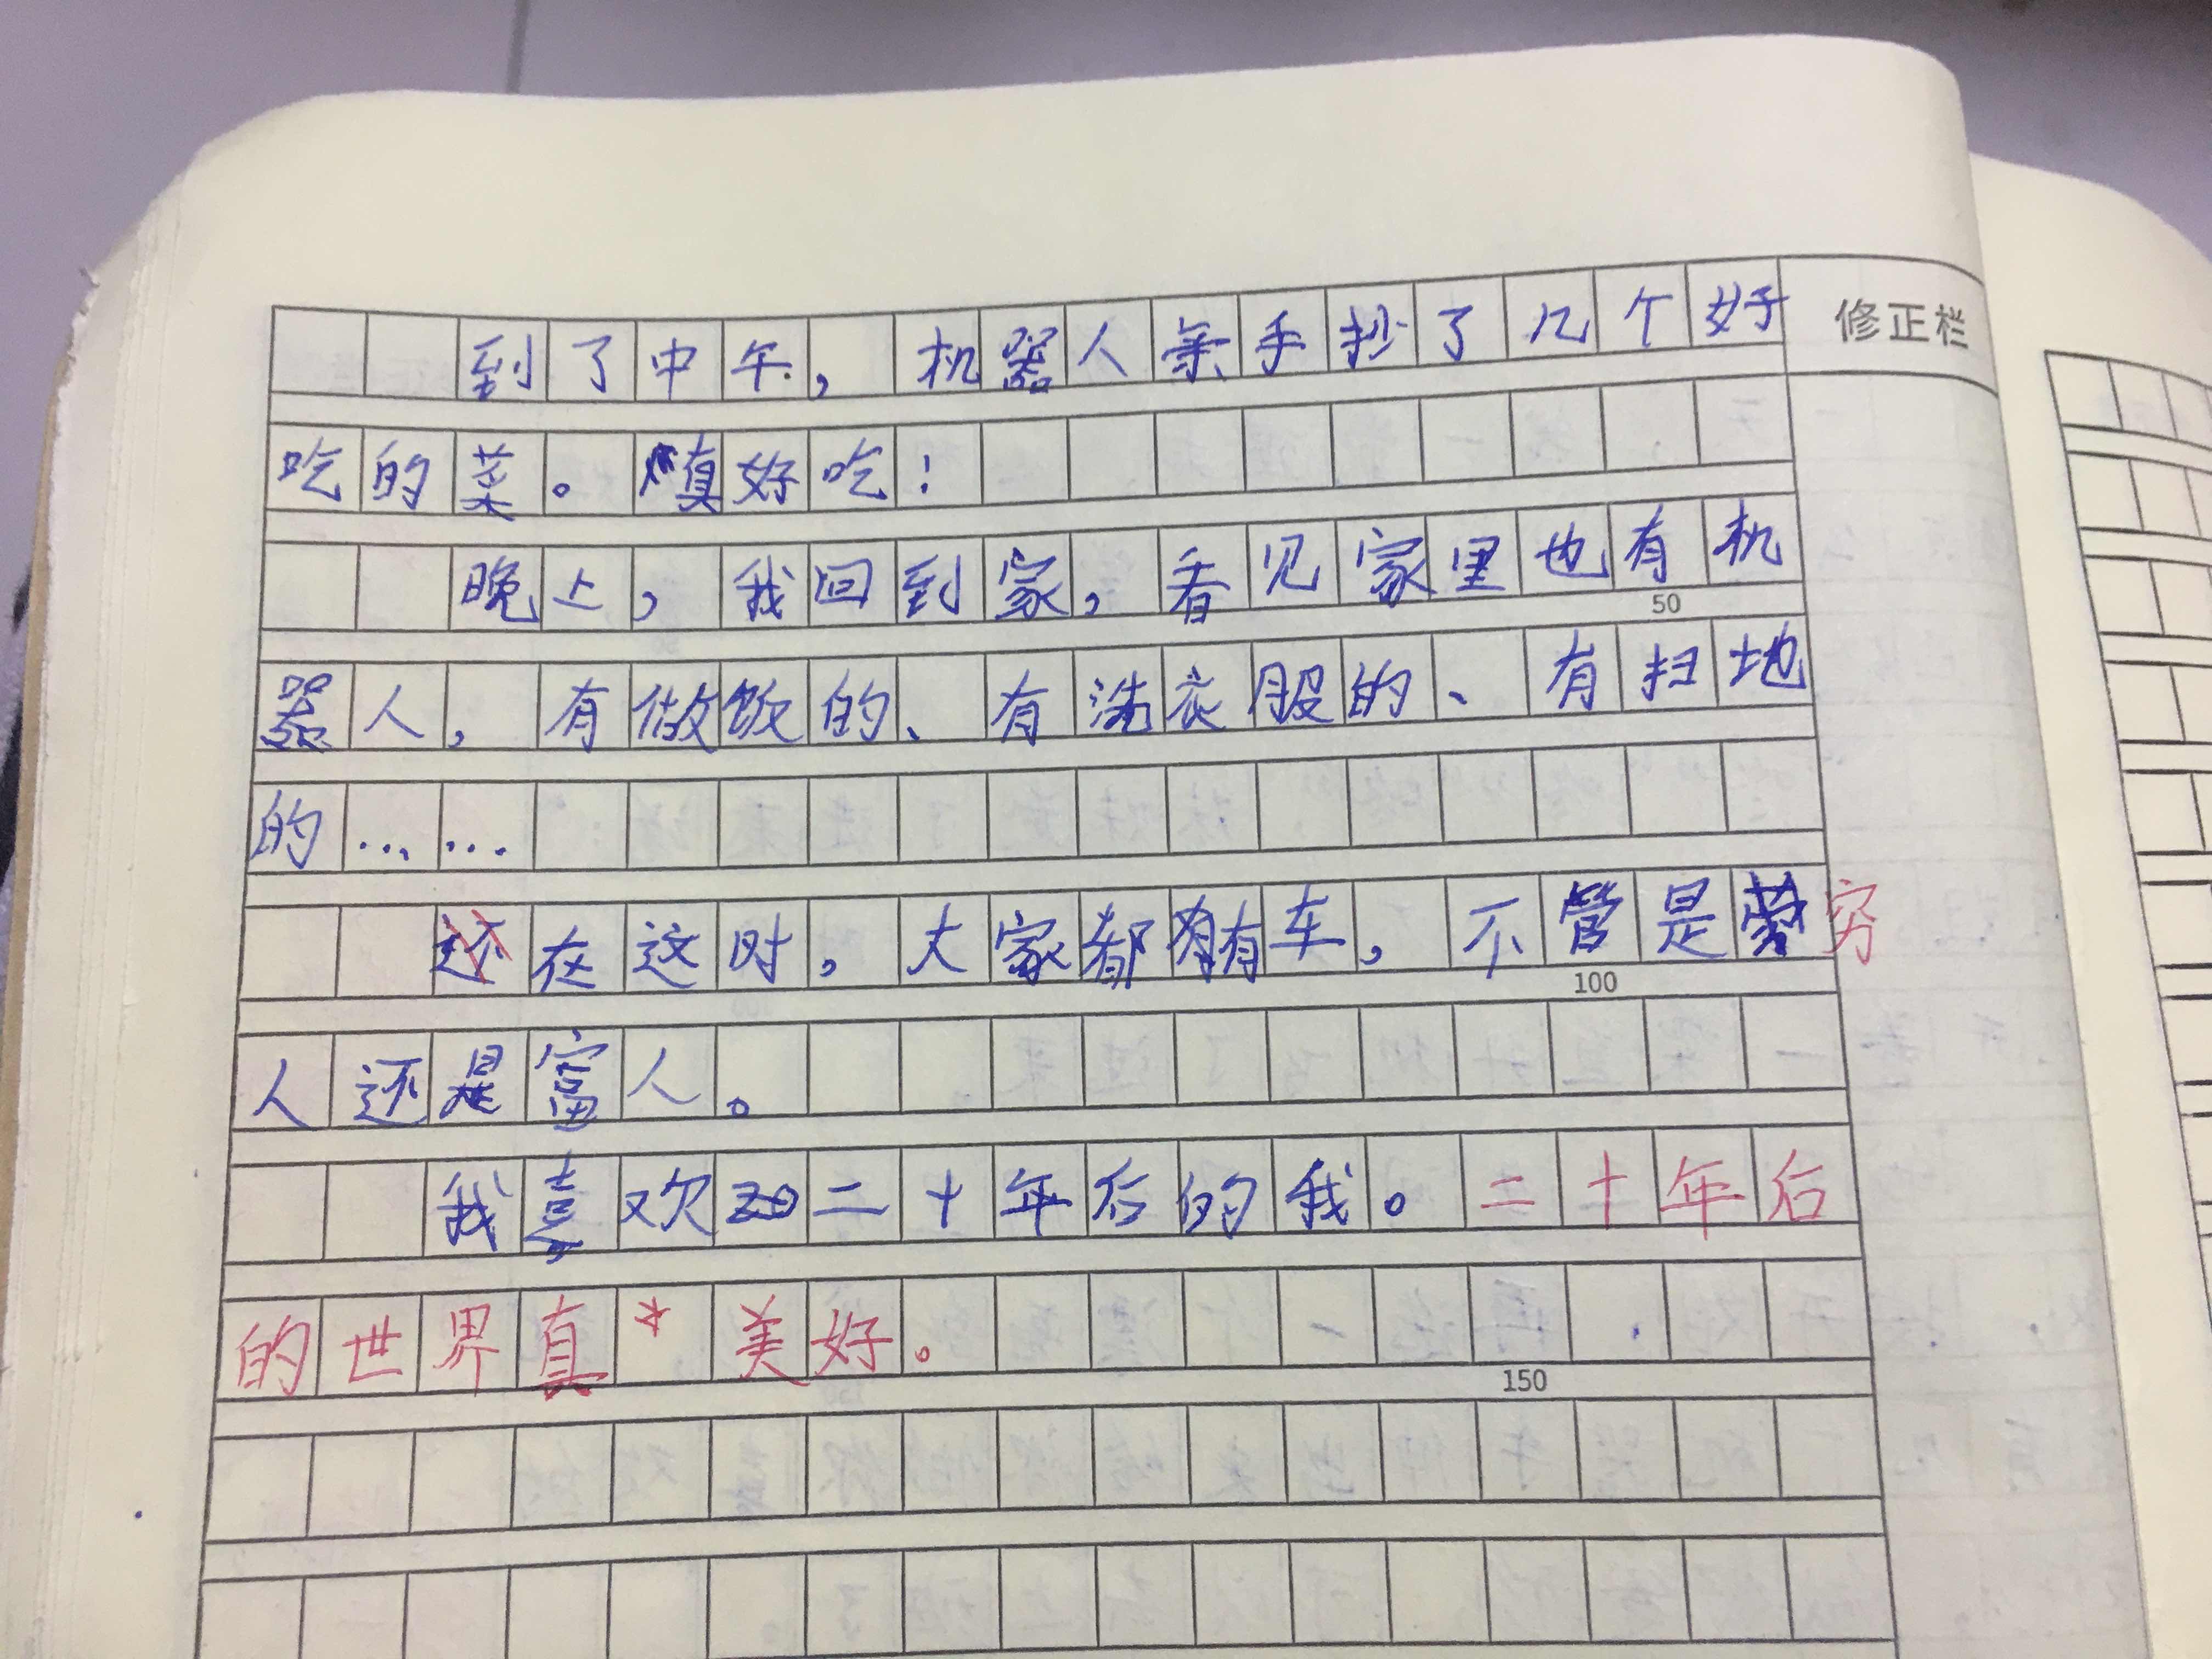 到了中午，机器人亲手抄了几个好
修正栏
吃的菜。真好吃！
晚上，我回到家，看见家里也有机
50
器人，有做饭的、有洗衣服的、有扫地
的……
还在这时，大家都有车，不管是穷
100
人还是富人。
我喜欢二十年后的我。二十年后
的世界真美好。
150